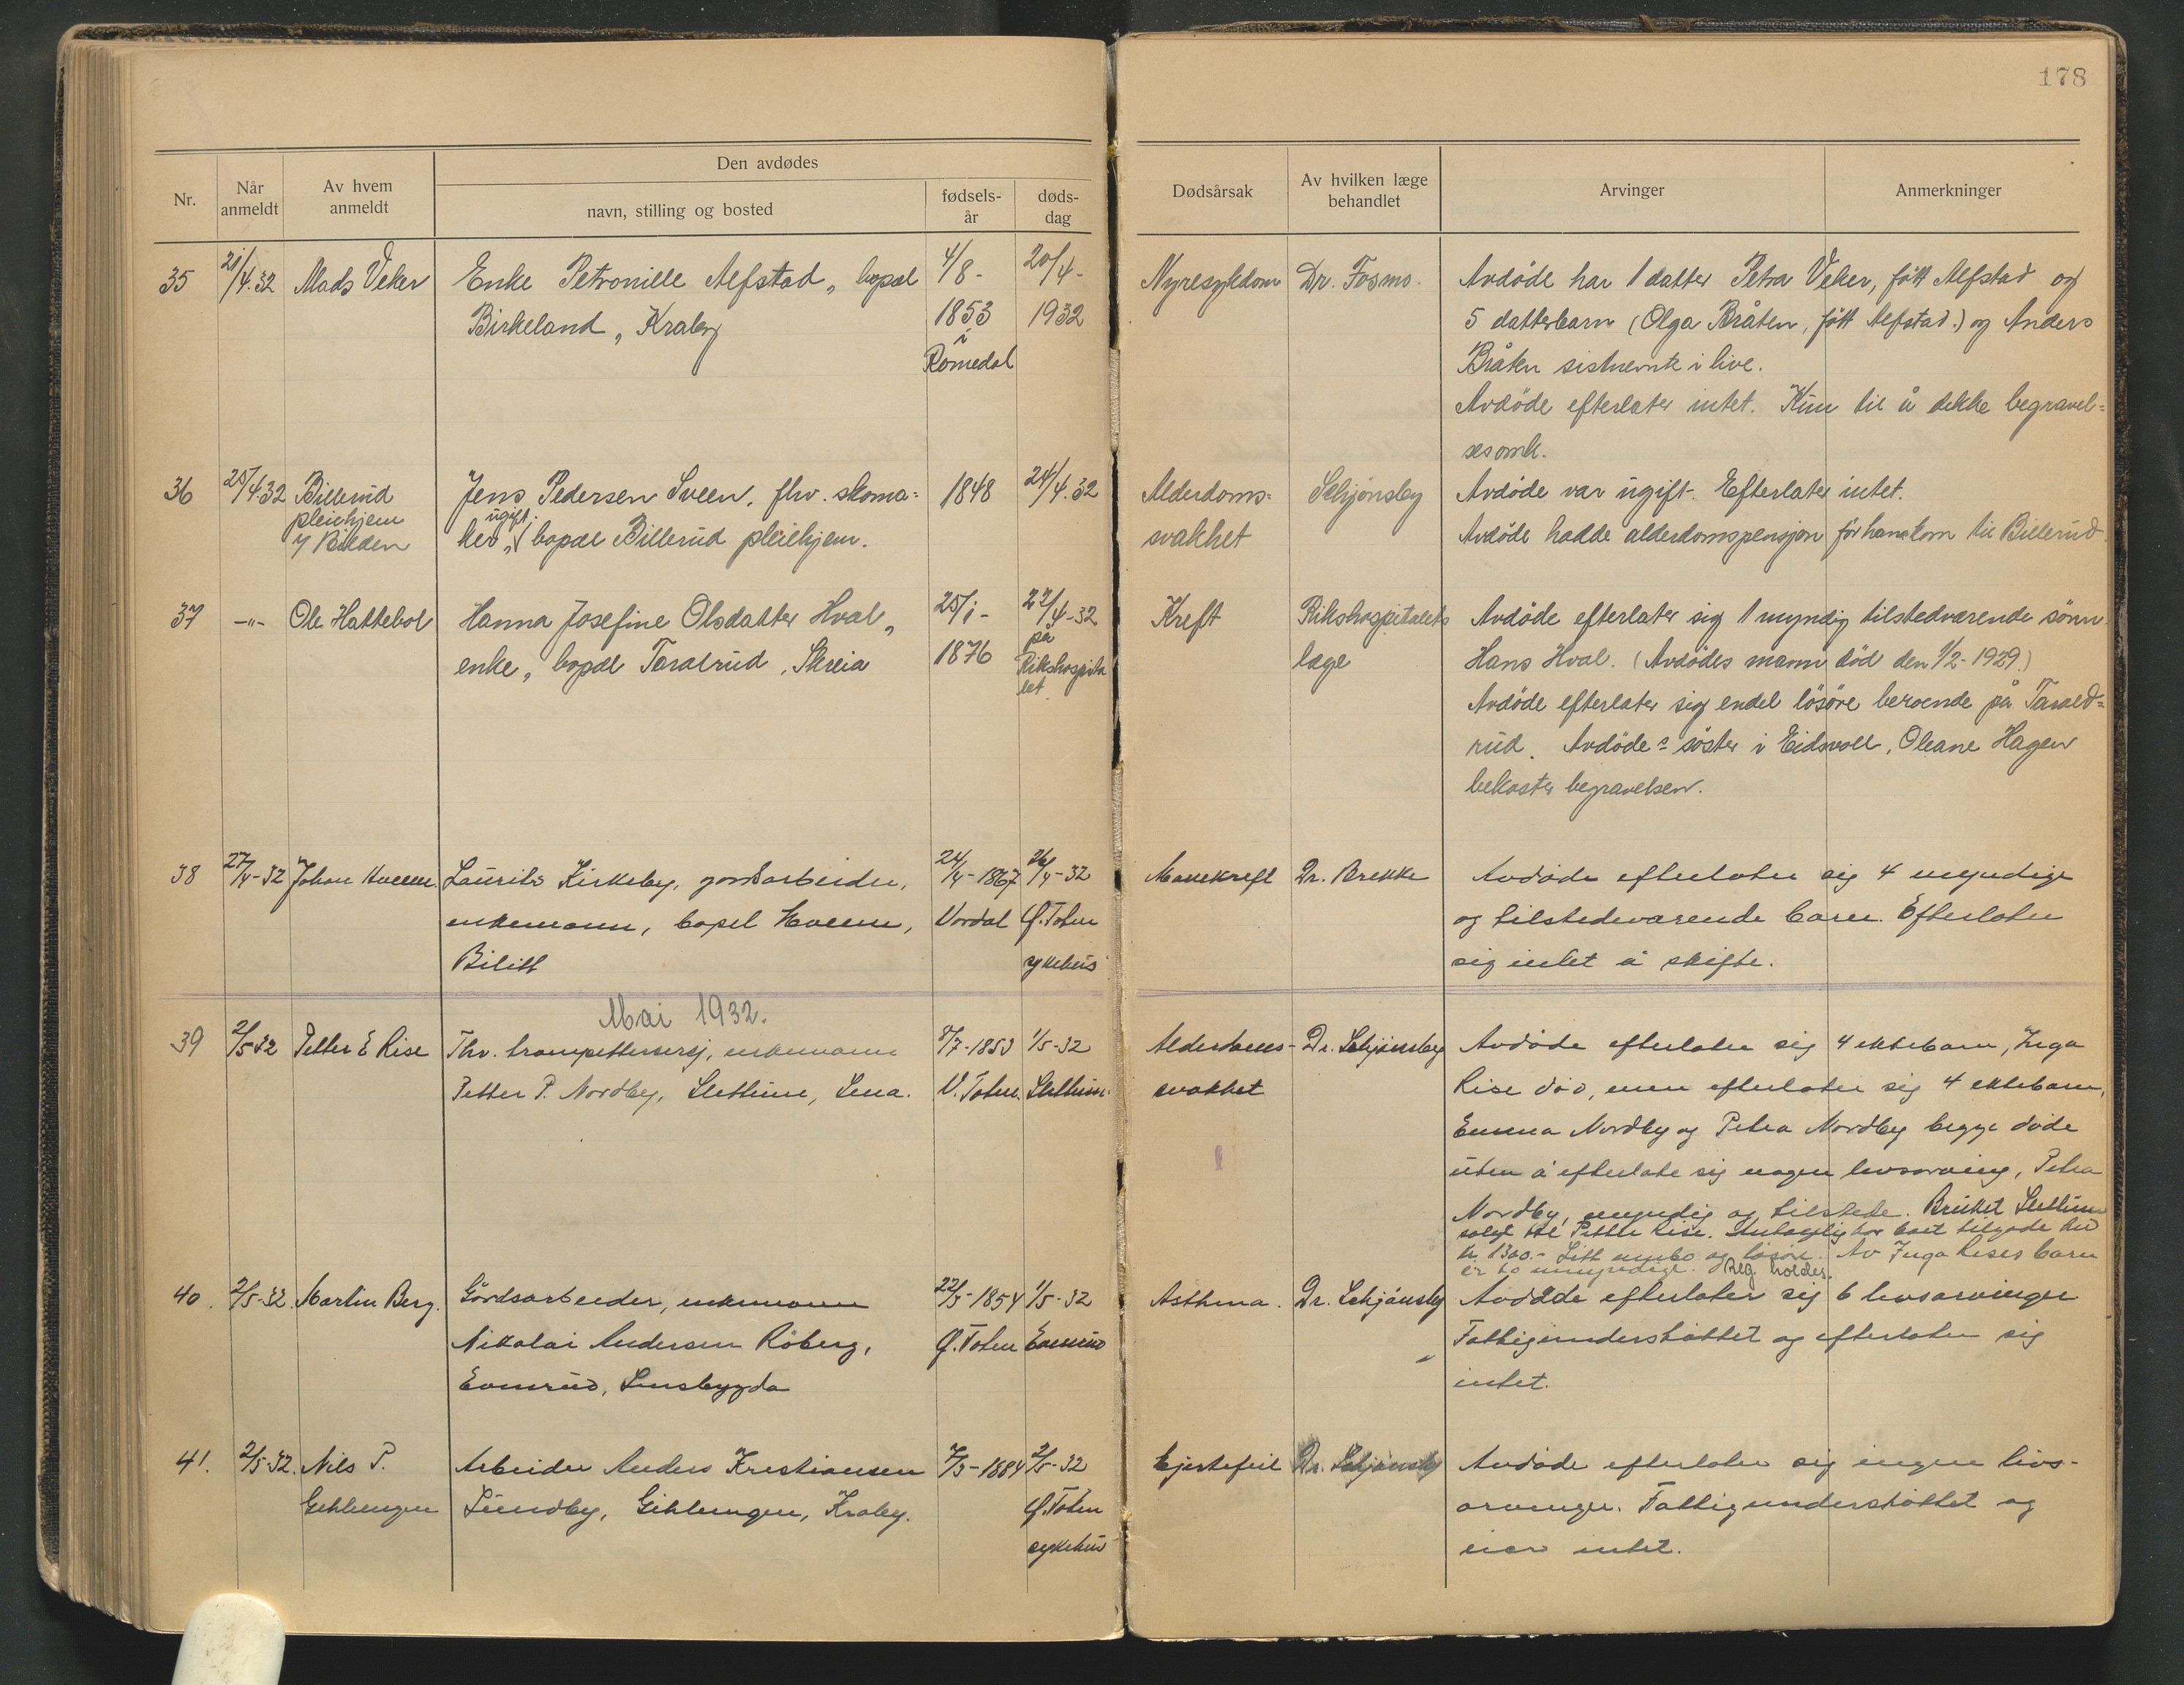 178
Den avdødes
Nr.
Når anmeldt
Av hvem anmeldt
navn, stilling og bosted
fødsels-år
døds-dag
Dødsårsak
Av hvilken læge behandlet
Arvinger
Anmerkninger
35 21/4.32 Mads Veker Enke Petronille Alfstad, bopæl 4/8- 20/4- Nyresykdom Dr. Fosmo. Avdøde har 1 datter Petra Veker, født Alfstad og
Birkeland, Kraby 1853 1932 5 datterbarn (Olga Bråten, født Alfstad.) og Anders
i Romedal Bråten sistnevnte i live.
Avdøde efterlater intet. Kun til å dekke begravel=
sesomk.
36 25/4.32 Billerud Jens Pedersen Sveen, fhv. skoma= 1848 24/4.32 Alderdoms= Schjønsby Avdøde var ugift. Efterlater intet.
pleiehjem ugift.
ker, bopæl Billerud pleiehjem. svakhet Avdøde hadde alderdomspensjon før han kom til Billerud.
37 -"- Ole Hattebol Hanna Josefine Olsdatter Hval, 25/1- 22/4-32 Kreft Rikshospitalets Avdøde efterlater sig 1 myndig tilstedværende sønn
enke, bopæl Taralrud, Skreia 1876 på Rikshospitalet læge Hans Hval. (Avdødes mann død den 1/2-1929.)
Avdøde efterlater sig endel løsøre beroende på Tarald=
rud. Avdøde's søster i Eidsvoll, Oleane Hagen
bekoster begravelsen.
38 27/4-32 Johan Hveem. Laurits Kirkeby, gårdsarbeider, 24/4-1867 26/4-32 Mavekreft Dr. Brekke Avdøde efterlater sig 4 myndige
enkemann, bopel Hveem, Vardal Ø. Toten og tilstedeværende barn. Efterlater
Bilitt sykehus sig intet å skifte.
Mai 1932.
39 2/5-32 Petter E Rise Fhv. trompettersersj, enkemann 7/7-1853 1/5-32 Alderdoms- Dr. Schjønsby Avdøde efterlater sig 4 ektebarn, Inga
Petter P. Nordby, Slettum, Lena. V. Toten. Slettum. svakhet Rise død, men efterlater sig 4 ektebarn,
Emma Nordby og Petra Nordby begge døde
uten å efterlate sig nogen livsarving, Petra
Nordby, myndig og tilstede. Bruket Slettum
solgt til Petter Rise.
kr. 1300.- Litt innbo og løsøre. Av Inga Rises barn
er to umyndige. Beg. holdes.
40. 2/5-32. Martin Berg. Gårdsarbeider, enkemann 22/5-1854 1/5-32 Asthma. Dr. Schjønsby Avdøde efterlater sig 6 livsarvinger
Nikolai Andersen Røberg, Ø. Toten Evenrud Fattigunderstøttet og efterlater sig
Evenrud, Lensbygda intet.
41. 2/5-32. Nils P. Arbeider Anders Kristiansen 7/3-1884 2/5-32 Hjertefeil Dr. Schjønsby Avdøde efterlater sig ingen livs-
Gihlengen Lundby, Gihlengen, Kraby. Ø. Toten arvinger. Fattigunderstøttet og
sykehus eier intet.